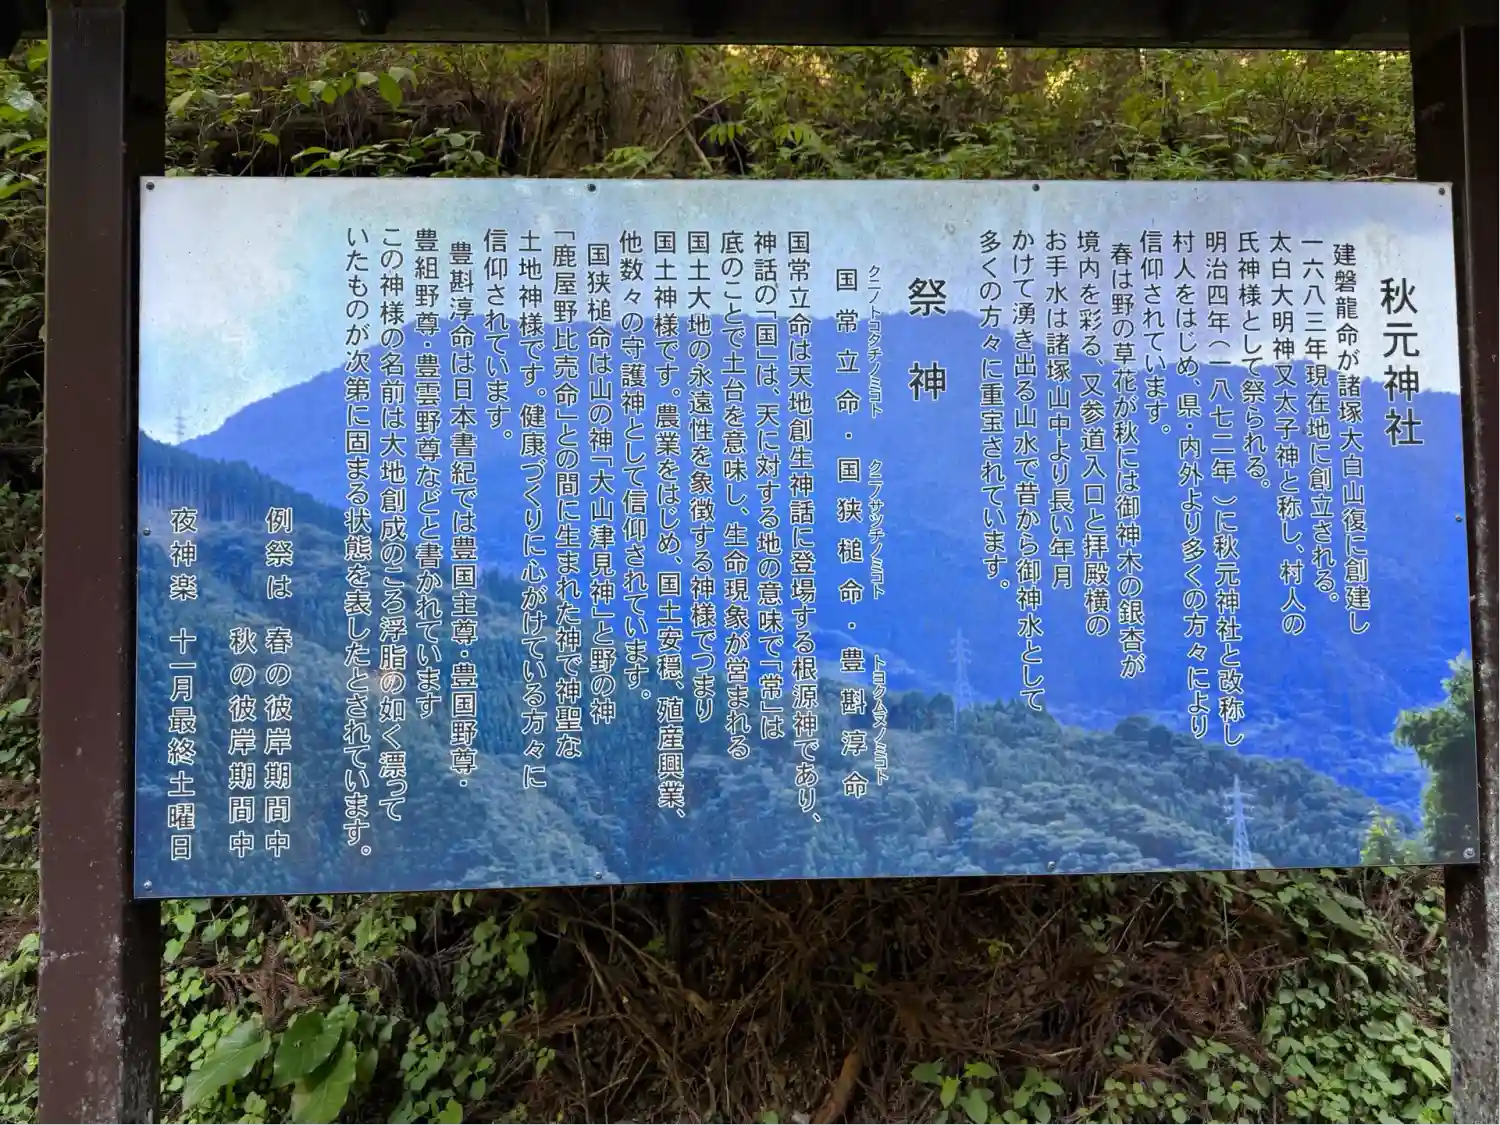 秋元神社
建磐龍命が諸塚大白山復に創建し
一六八三年現在地に創立される。
太白大明神又太子神と称し、村人の
氏神様として祭られる。
明治四年（一八七二年）に秋元神社と改称し
村人をはじめ、県・内外より多くの方々により
信仰されています。
春は野の草花が秋には御神木の銀杏が
境内を彩る、又参道入口と拝殿横の
お手水は諸塚山中より長い年月
かけて湧き出る山水で昔から御神水として
多くの方々に重宝されています。
祭神
クニノトコタチノミコト クニノサツチノミコト トヨクムヌノミコト
国常立命・国狭槌命・豊斟淳命
国常立命は天地創生神話に登場する根源神であり、
神話の「国」は、天に対する地の意味で「常」は
底のことで土台を意味し、生命現象が営まれる
国土大地の永遠性を象徴する神様でつまり
国土神様です。農業をはじめ、国土安穏、殖産興業、
他数々の守護神として信仰されています。
国狭槌命は山の神「大山津見神」と野の神
「鹿屋野比売命」との間に生まれた神で神聖な
土地神様です。健康づくりに心がけている方々に
信仰されています。
豊斟淳命は日本書紀では豊国主尊・豊国野尊・
豊組野尊・豊雲野尊などと書かれています
この神様の名前は大地創成のころ浮脂の如く漂って
いたものが次第に固まる状態を表したとされています。
例祭は 春の彼岸期間中
秋の彼岸期間中
夜神楽 十一月最終土曜日